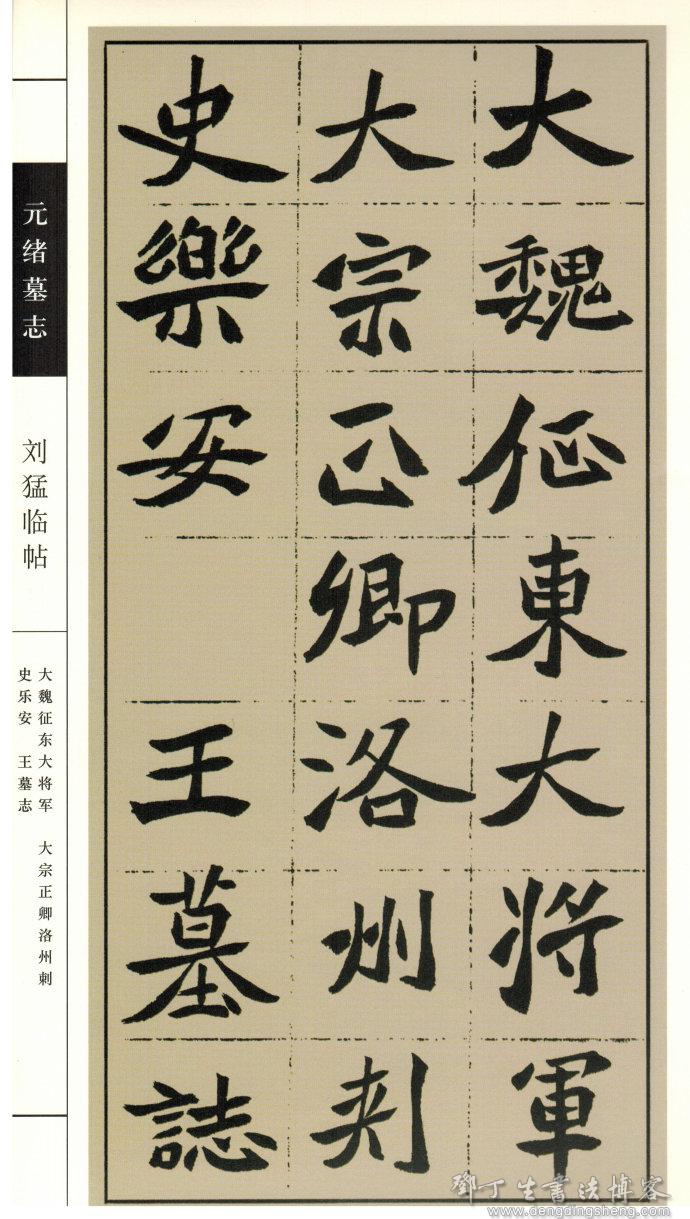 大魏征東大将軍
大宗正卿洛州刺
史樂安 王墓誌
元绪墓志
刘猛临帖
大魏征东大将军 大宗正卿洛州刺
史乐安 王墓志
鄧丁生書法博客
www.dengdingsheng.com